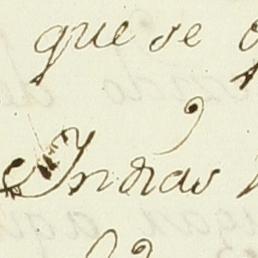 que se
Indias